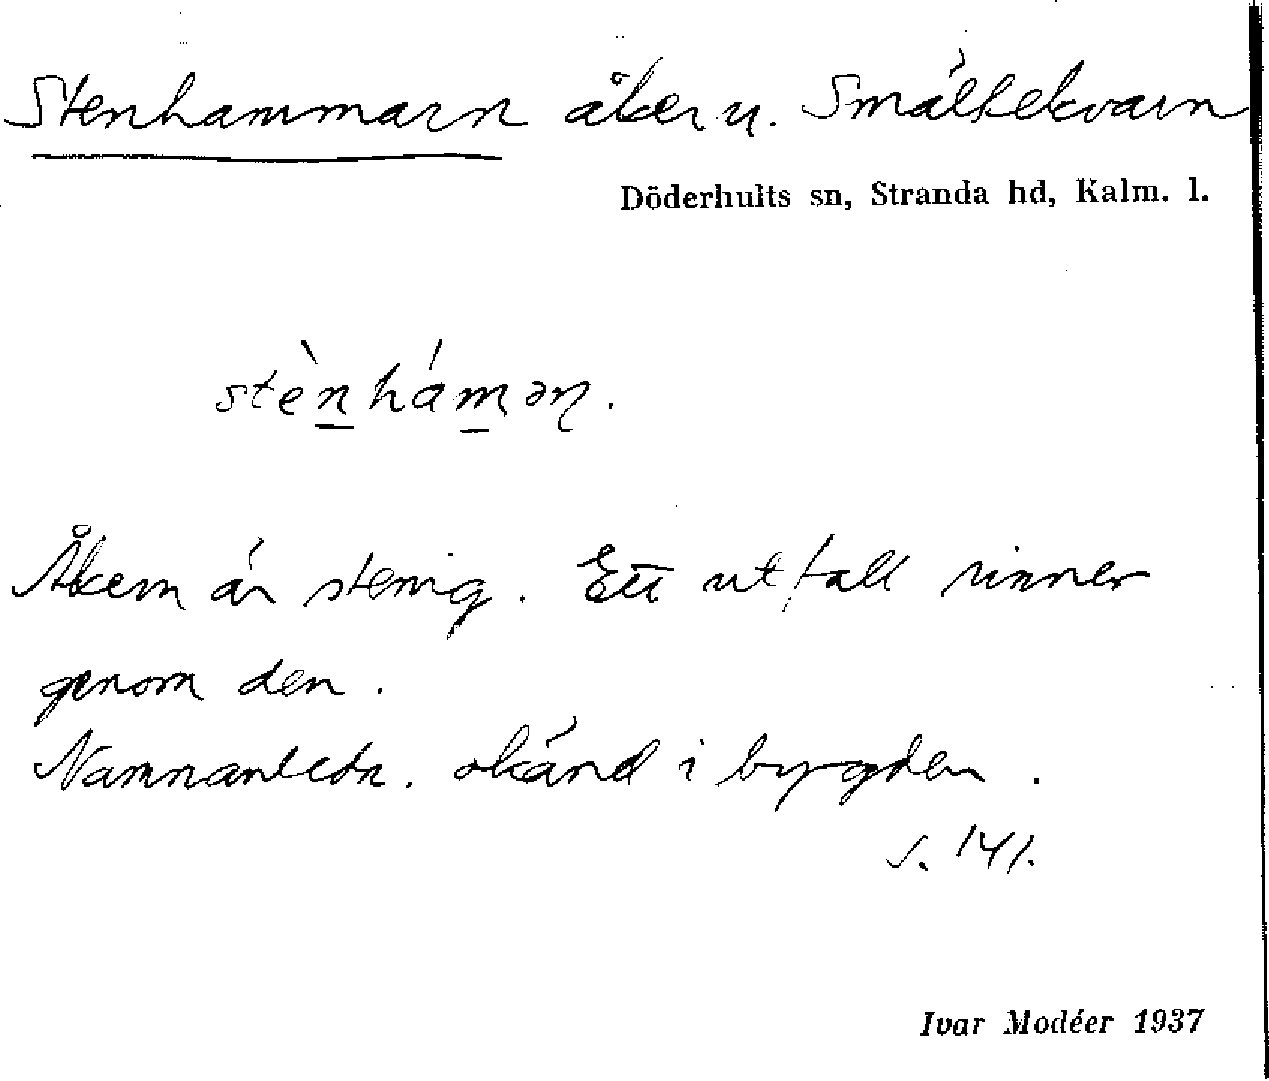 Stenhammarn åker u. Smältekvarn
Döderhults sn, Stranda hd, Kalm. l.
stènhámәn.
Åkern är stenig. Ett utfall rinner
genom den.
Namnanledn. okänd i bygden.
s. 141.
Ivar Modéer 1937